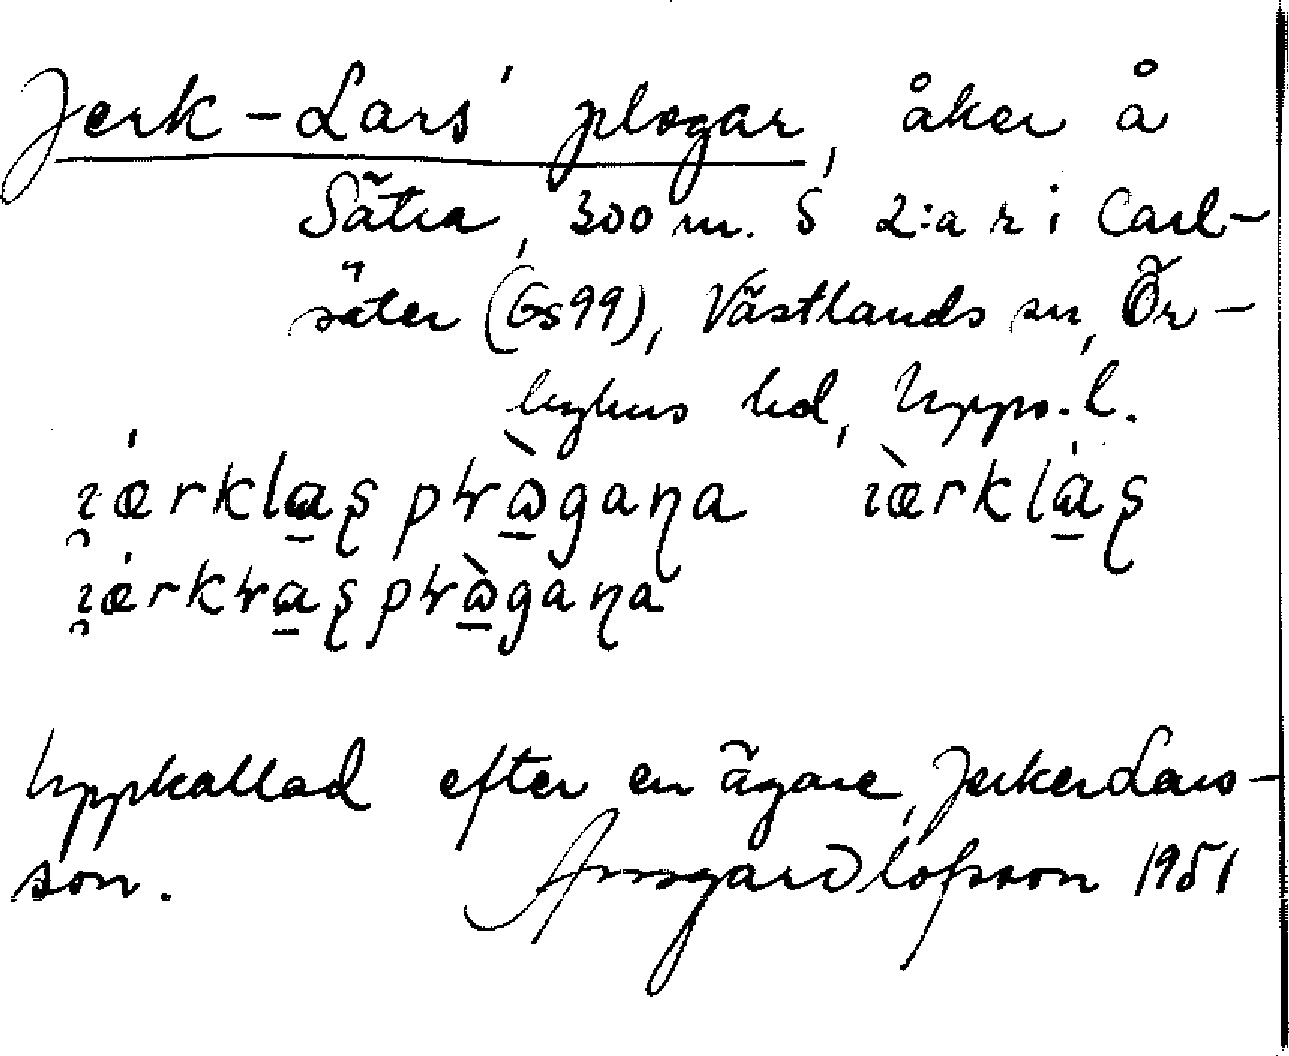 Jerk-Lars' plogar, åker å
Sätra, 300 m. S 2:a r i Carl-
säter (Gs99), Västlands sn, Ör-
byhus hd, Upps. l.
ı̯ǽrkla̲ʂ pɽɷ̲̀gaɳa ıæ̀rklá̲ʂ
ı̯ǽrkɽa̲ʂ pɽɷ̲̀gaɳa
Uppkallad efter en ägare, Jerker Lars-
son. Ansgar Olofsson 1951